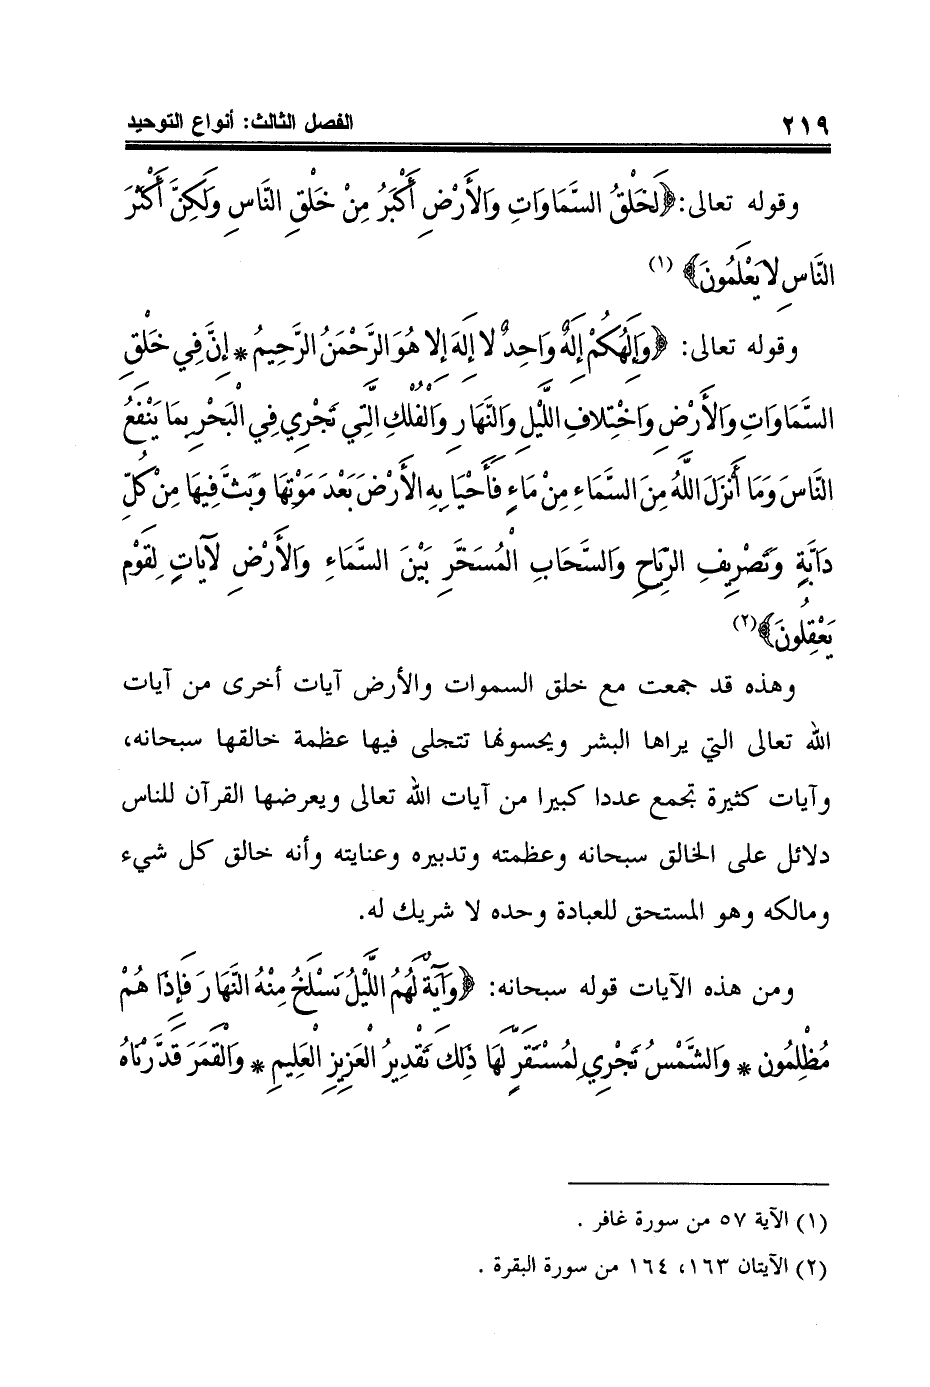 ٢١٩ الفصل الثالث: أنواع التوحيد
وقوله تعالى: ﴿لَخَلْقُ السَّمَاوَاتِ وَالأَرْضِ أَكْبَرُ مِنْ خَلْقِ النَّاسِ وَلَكِنَّ أَكْثَرَ
النَّاسِ لا يَعْلَمُونَ﴾ (١)
وقوله تعالى: ﴿وَإِلَهُكُمْ إِلَهٌ وَاحِدٌ لا إِلَهَ إِلا هُوَ الرَّحْمَنُ الرَّحِيمُ * إِنَّ فِي خَلْقِ
السَّمَاوَاتِ وَالأَرْضِ وَاخْتِلافِ اللَّيْلِ وَالنَّهَارِ وَالْفُلْكِ الَّتِي تَجْرِي فِي الْبَحْرِ بِمَا يَنْفَعُ
النَّاسَ وَمَا أَنْزَلَ اللَّهُ مِنَ السَّمَاءِ مِنْ مَاءٍ فَأَحْيَا بِهِ الأَرْضَ بَعْدَ مَوْتِهَا وَبَثَّ فِيهَا مِنْ كُلِّ
دَابَّةٍ وَتَصْرِيفِ الرِّيَاحِ وَالسَّحَابِ الْمُسَخَّرِ بَيْنَ السَّمَاءِ وَالأَرْضِ لَآيَاتٍ لِقَوْمٍ
يَعْقِلُونَ﴾ (٢)
وهذه قد جمعت مع خلق السموات والأرض آيات أخرى من آيات
الله تعالى التي يراها البشر ويحسونها تتجلى فيها عظمة خالقها سبحانه،
وآيات كثيرة تجمع عددا كبيرا من آيات الله تعالى ويعرضها القرآن للناس
دلائل على الخالق سبحانه وعظمته وتدبيره وعنايته وأنه خالق كل شيء
ومالكه وهو المستحق للعبادة وحده لا شريك له.
ومن هذه الآيات قوله سبحانه: ﴿وَآيَةٌ لَهُمُ اللَّيْلُ نَسْلَخُ مِنْهُ النَّهَارَ فَإِذَا هُمْ
مُظْلِمُونَ * وَالشَّمْسُ تَجْرِي لِمُسْتَقَرٍّ لَهَا ذَلِكَ تَقْدِيرُ الْعَزِيزِ الْعَلِيمِ * وَالْقَمَرَ قَدَّرْنَاهُ
(١) الآية ٥٧ من سورة غافر .
(٢) الآيتان ١٦٣، ١٦٤ من سورة البقرة .